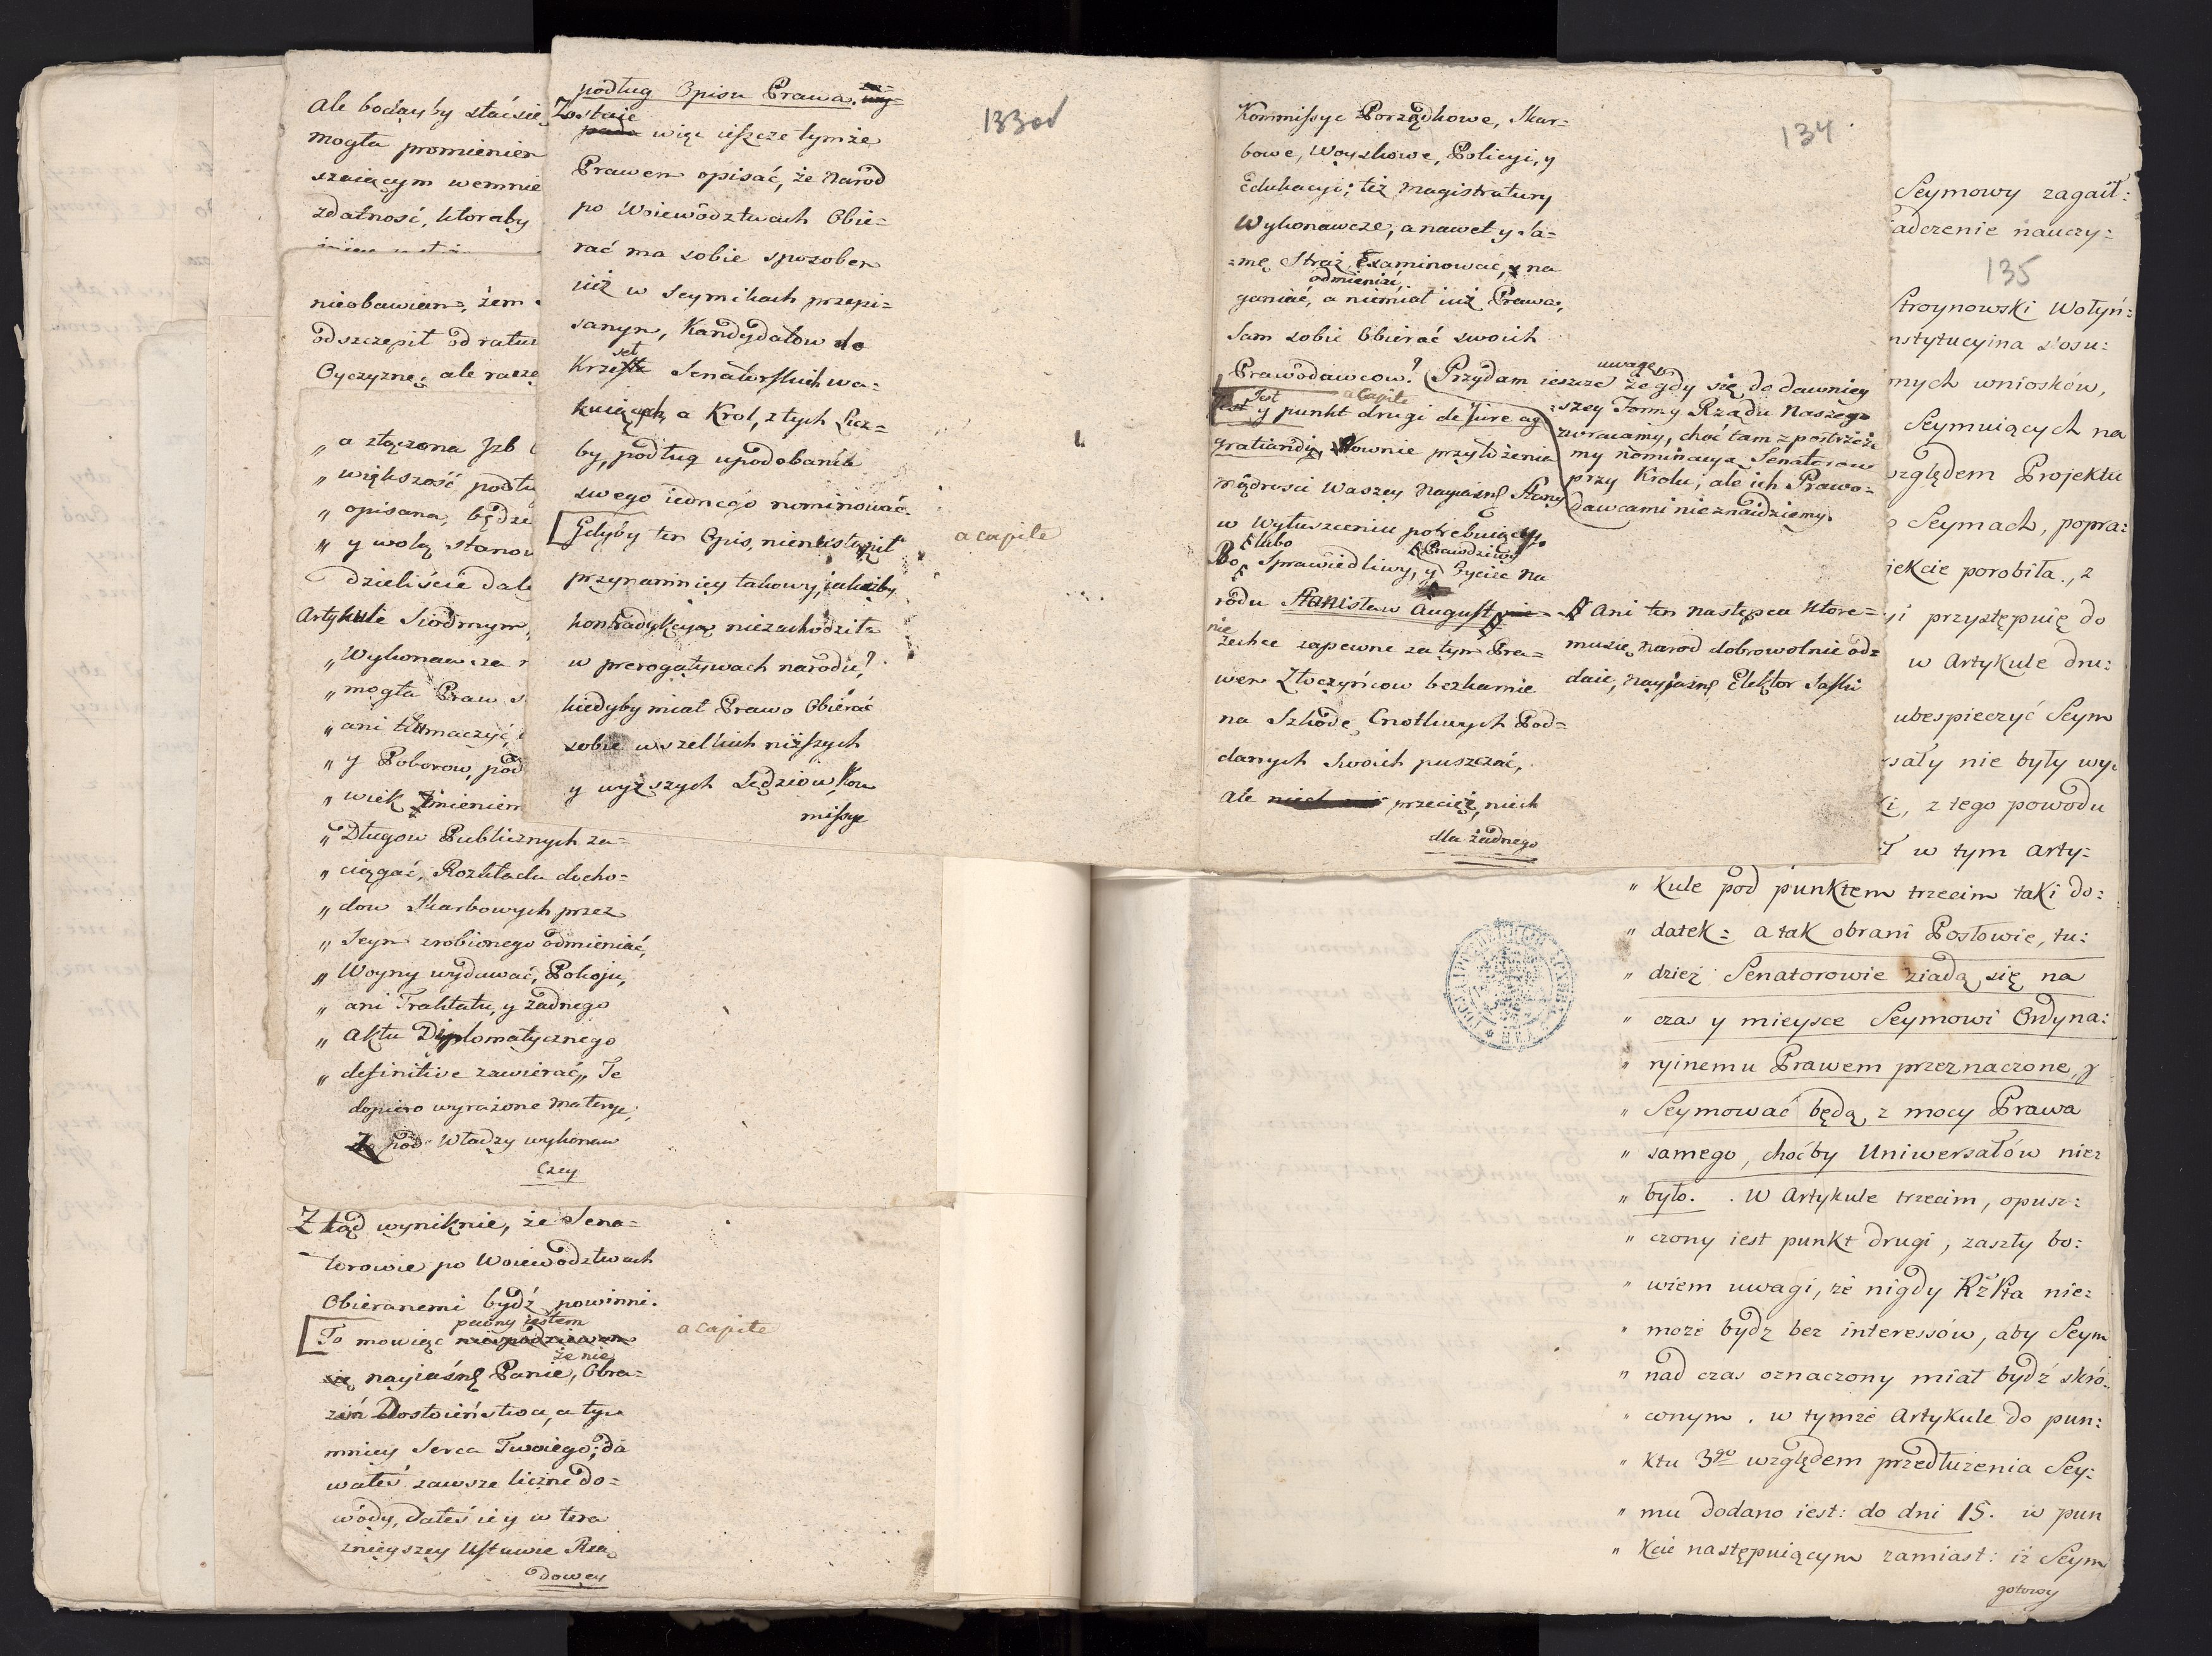 Ale bodayby stać się
mogła promienien
szaiącym wemnie
zdatność, ktoraby
nieobawiam, żem
odszczepił od ratun
Oyczyznę; ale racze
„ a złączona Jzb
„ większość podłu
„ opisana, będze
„ y wolą stanow
dzieliście dale
Artykule Siodmym,
„ Wykonawcza n
„ mogła Praw s
„ ani tłomaczyć,
„ y Poborow, pod
„ wiek imieniem
„ Długow Publicznych za=
„ ciągać, Rozkładu docho=
„ dow Skarbowych przez
„ Seym zrobionego odmieniać,
„ Woyny wydawać, Pokoju,
„ ani Traktatu, y żadnego
„ aktu Diplomatycznego
„ definitive zawierać„ Te
dopiero wyrażone Materye,
Za pod Władzy wykonaw
czey
Ztąd wyniknie, że Sena=
torowie po Woiewodztwach
Obieranemi bydź powinni.
pewny iestem
To mowiąc niespodziewam a capite
że nie
się nayiaśń Panie, Obra=
ził Dostoieństwa, a tym
mniey Serca Twoiego; da
wałeś zawsze liczne do=
wódy, dałeś ie y w tera
znieyszey Ustawie Rzą
dowey
podług Opisu Prawa.
Zostaie
133 od
więc ieszcze tymże
Prawem opisać, że Narod
po Woiewództwach Obie=
rać ma sobie sposobem
iuż w Seymikach przepi=
sanym, Kandydatow do
seł
Krzesła Senatorskich wa=
kuiących, a Krol, z tych Licz=
by, podług upodobania
swego iednego nominować.
Gdyby ten Opis, nienastąpił a capite
przynamniey takowy, iakażby
kontradykcya niezachodziła
w prerogatywach narodu?
kiedyby miał Prawo Obierać
sobie wszelkich niższych
y wyższych Sędziow, Kom
missye
Kommissye Porządkowe, Skar=
134
bowe, Woyskowe, Policyi, y
Edukacyi; też Magistratury
Wykonawcze, a nawet y Sa=
=mę Straż Examinować, y na
odmieniać,
ganiać, a niemiał iuż Prawa,
Sam sobie Obierać swoich
Prawodawcow? (Przydam ieszcze uwagę, że gdy się do dawniey
=szey Formy Rządu Naszego
zwracamy, choć tam =postrzeże
my nominacya Senatorow
przy Krolu, ale ich Prawo=
dawcami nieznaidziemy.
Jest a Capite
y punkt drugi de Jure ag
gratiandi, Rownie przyłożenia
mądrości Waszey Nayiaśń Stany
w Wyłuszczeniu potrebuiący.
lubo Prawdziwy
Bo, Sprawiedliwy, y Oyciec Na
rodu Stanisław August
nie
zechce zapewne za tym Pra=
wem Złoczyńcow bezkarnie
na Szkodę Cnotliwych Pod=
danych Swoich puszczać,
Ale przecięż, niech
dla żadnego
Ani ten następca Ktore=
mu się narod dobrowolnie od=
daie, Nayjaśń Elektor Saski
Seymowy zagaił:
adczenie nauczy:
135
Stroynowski Wołyń:
nstytucyina stosu:
mych wniosków,
Seymuiących na
względem Projektu
o Seymach, popra:
iekcie porobiła., z
yi przystępuię do
w Artykule dru:
ubespieczyć Seym
rsały nie były wy
ki, z tego powodu
w tym arty:
„ kule pod punktem trzecim taki do:
„ datek: a tak obrani Posłowie, tu:
„ dzież Senatorowie ziadą się na
„ czas y mieysce Seymowi Ordyna:
„ ryinemu Prawem przeznaczone, y
„ Seymować będą, z mocy Prawa
„ samego, choćby Uniwersałów nie:
„ było. . W Artykule trzecim, opusz:
„ czony iest punkt drugi, zaszły bo:
„ wiem uwagi, że nigdy RżPta nie:
„ może bydź bez interessów, aby Seym
„ nad czas oznaczony miał bydź skró:
„ conym. w tymże Artykule do pun:
„ ktu 3go względem przedłużenia Sey:
„ mu dodano iest: do dni 15. w pun
„ Kcie następuiącym zamiast: iż Seym
gotowy